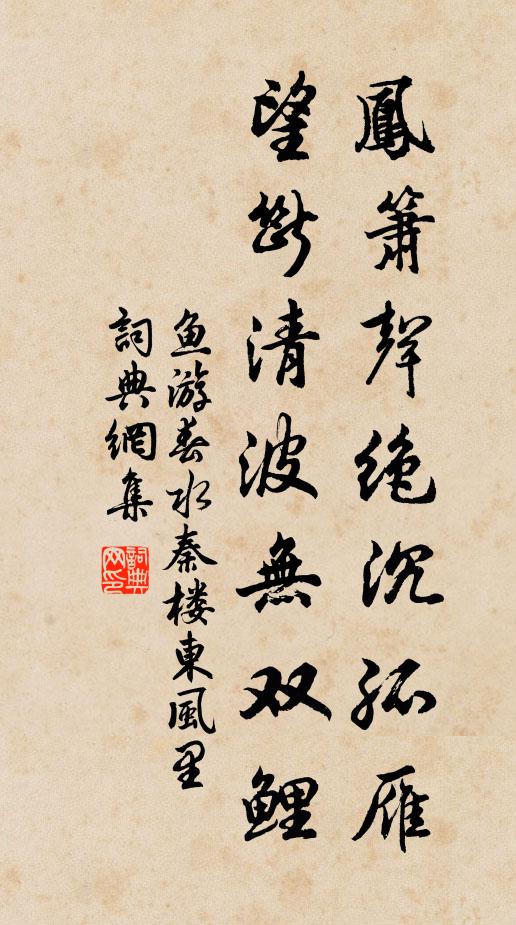 鳳簫聲絶沉孤雁
望斷清波無双鯉
鱼游春水秦楼東風里
詞典網集
詞典网印